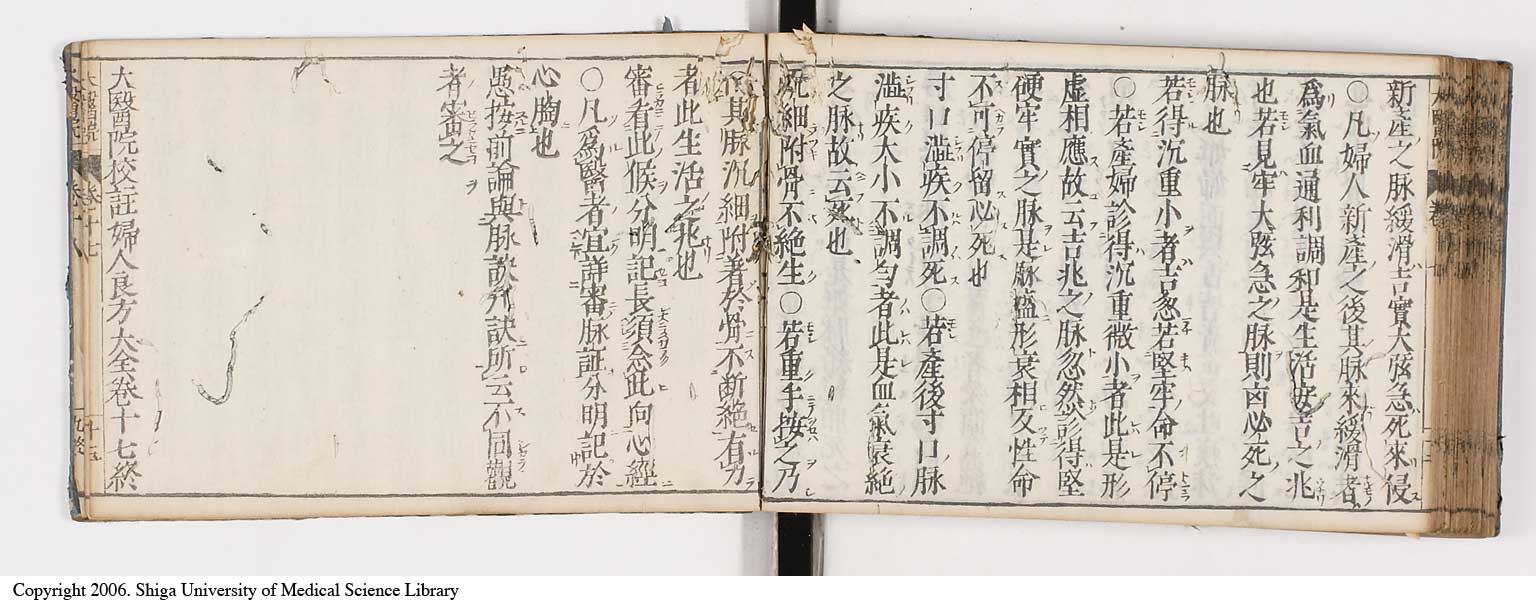 新產之脉緩滑吉實大弦急死來侵
〇凡婦人新產之後其脉來緩滑者
爲氣血通利調和是生活安吉之兆
也若見牢大弦急之脉則凶必死之
脉也
若得沉重小者吉忽若堅牢命不停
〇若產婦診得沉重微小者此是形
虛相應故云吉兆之脉忽然診得堅
硬牢實之脉是脉盛形衰相反性命
不可停留必死也
寸口澁疾不調死〇若產後寸口脉
澁疾大小不調勻者此是血氣衰絶
之脉故云死也
沉細附骨不絶生〇若重手按之乃
其脉沉細附着於骨不断絶有力
者此生活之兆也
審看此候分明記長須念此向心經
〇凡爲醫者宜詳審脉証分明記於
心胸也
愚按前論與脉訣所云不同觀
者審之
大醫院校註婦人良方大全卷十七終
Copyright 2006. Shiga University of Medical Science Library